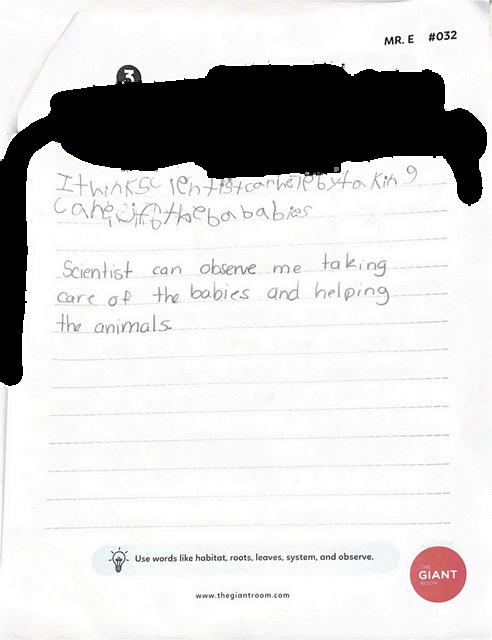 MR. E #032
3
I think Scientist can hele by taking
care of the bababies
Scientist can observe me taking
care of the babies and helping
the animals.
Use words like habitat, roots, leaves, system, and observe.
THE
GIANT
ROOM
www.thegiantroom.com